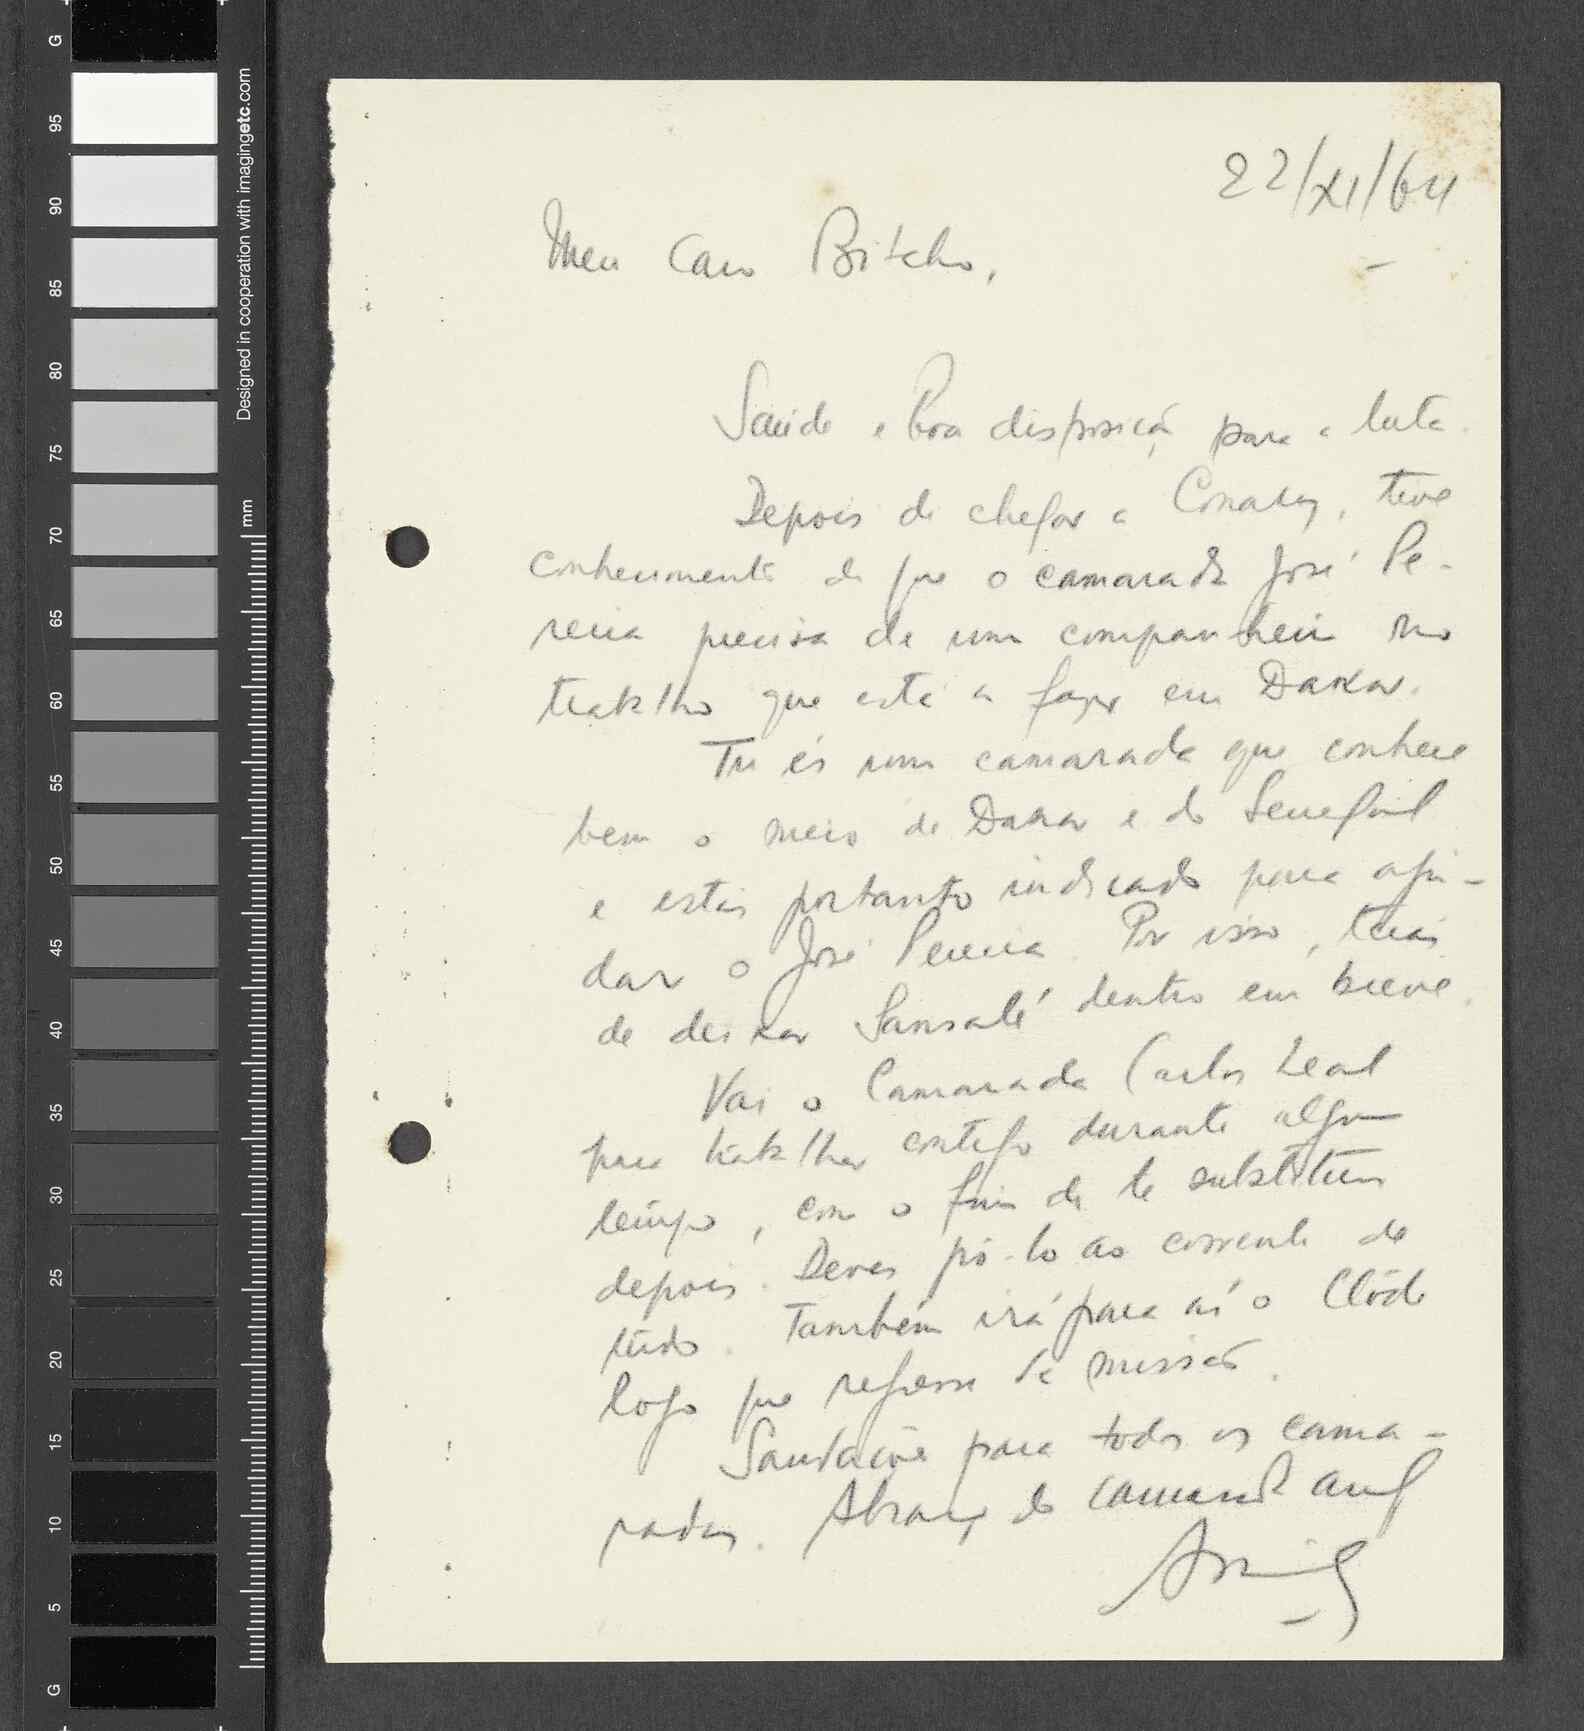 22/XI/64
Meu caro Bitcho,
Saúde e boa disposição para a luta.
Depois de chegar a Conakry, tive
conhecimento de que o camarada José Pe-
reira precisa de um companheiro no
trabalho que está a fazer em Dakar.
Tu és um camarada que conhece
bem o meio de Dakar e do Senegal
e estás portanto indicado para aju-
dar o José Pereira. Por isso, terás
de deixar Sansalé dentro em breve.
Vai o Camarada Carlos Leal
para trabalhar contigo durante algum
tempo, com o fim de te substituir
depois. Deves pô-lo ao corrente de
tudo. Também irá para aí o Clode
logo que regresse da missão.
Saudações para todos os cama-
radas. Abraço do camarada amigo
G
95
90
85
80
75
70
65
60
55
50
45
40
35
30
25
20
15
10
5
G
Designed in cooperation with imagingetc.com
mm